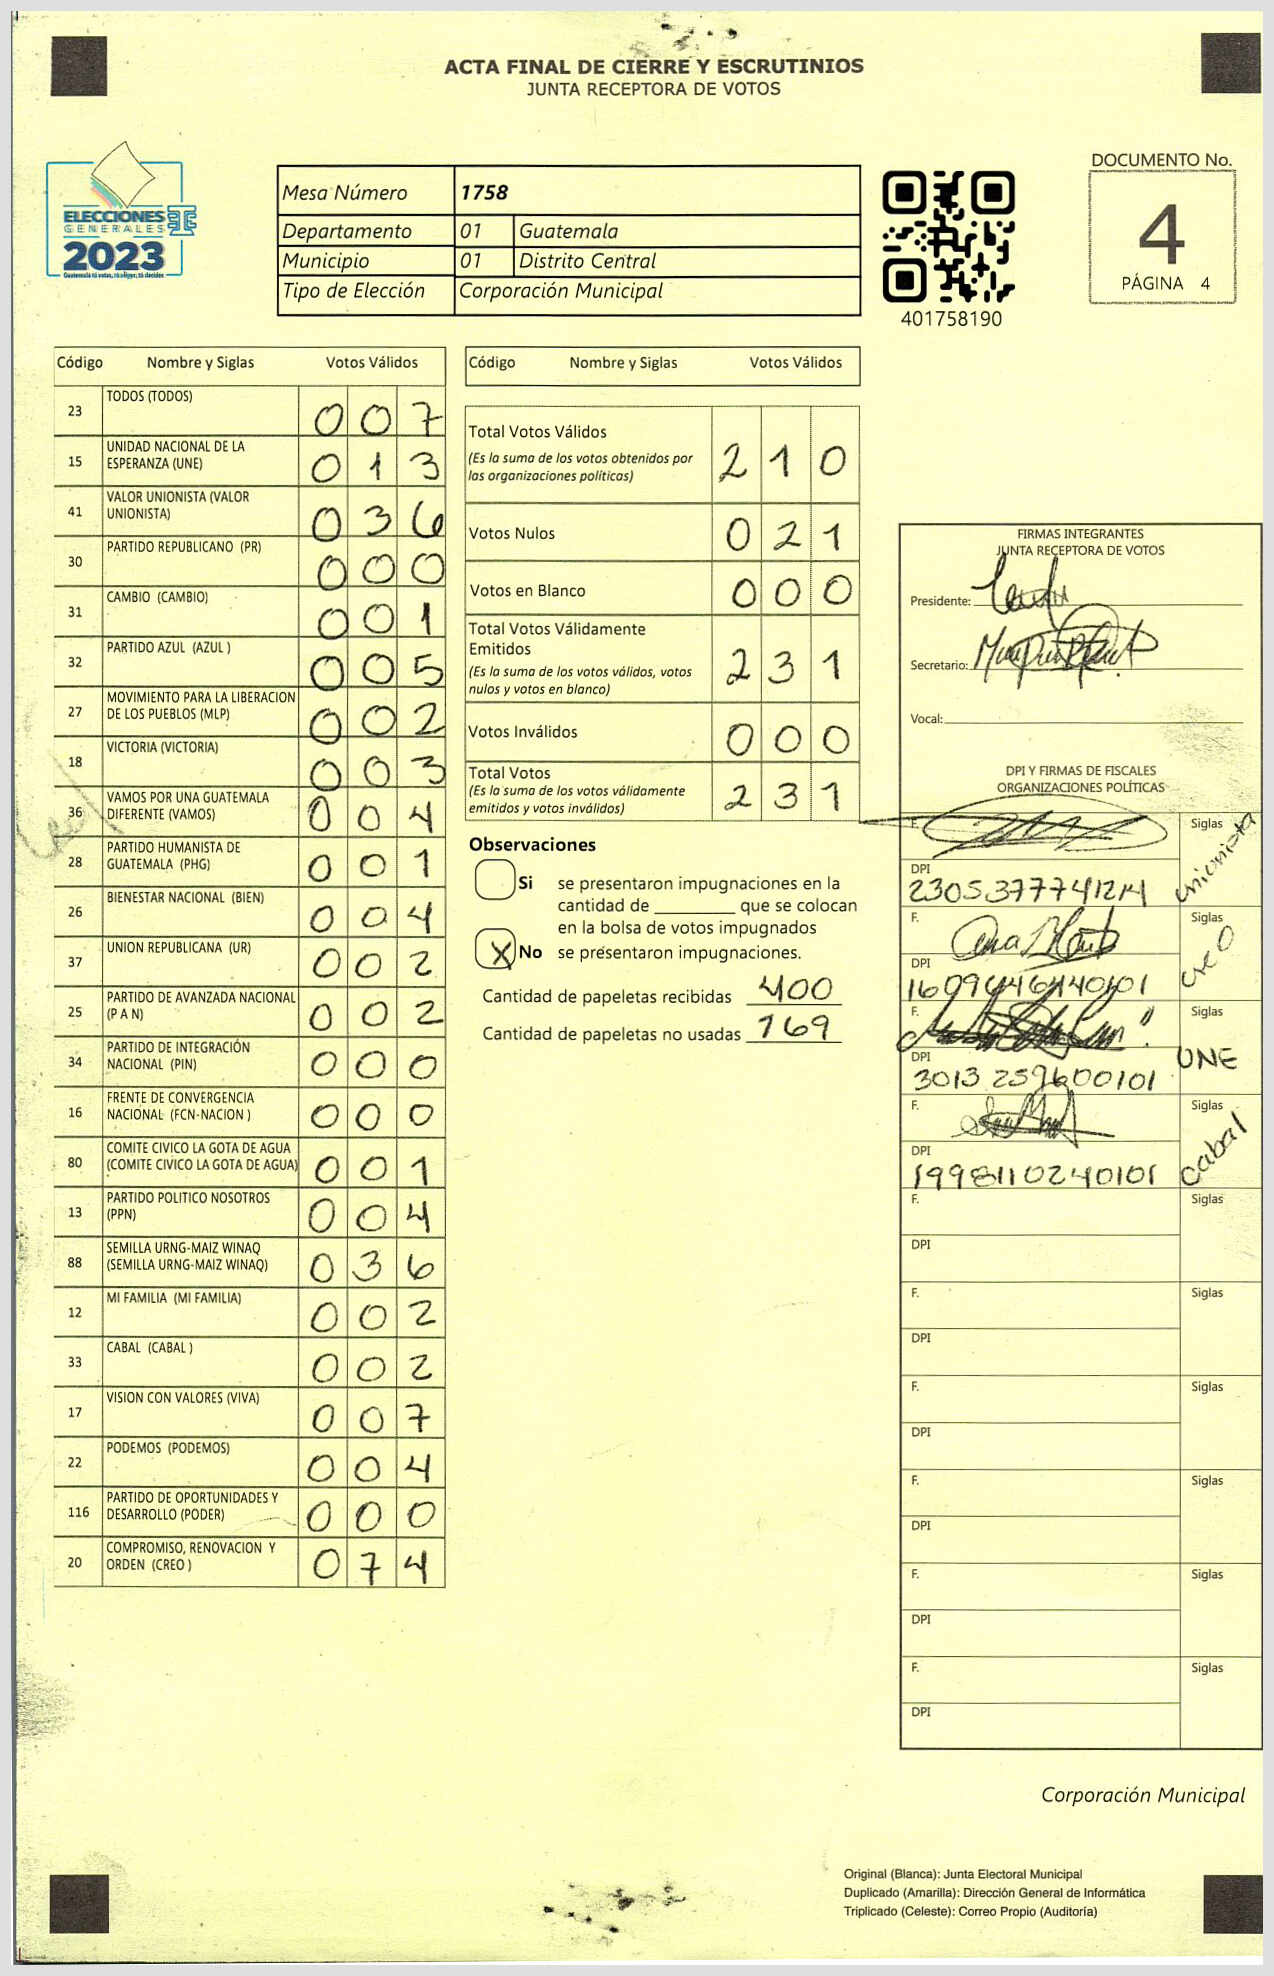 ACTA FINAL DE CIERRE Y ESCRUTINIOS
JUNTA RECEPTORA DE VOTOS
ELECCIONES
GENERALES
2023
Mesa Número 1758
Departamento 01 Guatemala
Municipio 01 Distrito Central
Tipo de Elección Corporación Municipal
401758190
DOCUMENTO No.
4
PÁGINA 4
Código Nombre y Siglas Votos Válidos
23 TODOS (TODOS) 0 0 7
15 UNIDAD NACIONAL DE LA ESPERANZA (UNE) 0 1 3
41 VALOR UNIONISTA (VALOR UNIONISTA) 0 3 6
30 PARTIDO REPUBLICANO (PR) 0 0 0
31 CAMBIO (CAMBIO) 0 0 1
32 PARTIDO AZUL (AZUL ) 0 0 5
27 MOVIMIENTO PARA LA LIBERACION DE LOS PUEBLOS (MLP) 0 0 2
18 VICTORIA (VICTORIA) 0 0 3
36 VAMOS POR UNA GUATEMALA DIFERENTE (VAMOS) 0 0 4
28 PARTIDO HUMANISTA DE GUATEMALA (PHG) 0 0 1
26 BIENESTAR NACIONAL (BIEN) 0 0 4
37 UNION REPUBLICANA (UR) 0 0 2
25 PARTIDO DE AVANZADA NACIONAL (P A N) 0 0 2
34 PARTIDO DE INTEGRACIÓN NACIONAL (PIN) 0 0 0
16 FRENTE DE CONVERGENCIA NACIONAL (FCN-NACION ) 0 0 0
80 COMITE CIVICO LA GOTA DE AGUA (COMITE CIVICO LA GOTA DE AGUA) 0 0 1
13 PARTIDO POLITICO NOSOTROS (PPN) 0 0 4
88 SEMILLA URNG-MAIZ WINAQ (SEMILLA URNG-MAIZ WINAQ) 0 3 6
12 MI FAMILIA (MI FAMILIA) 0 0 2
33 CABAL (CABAL ) 0 0 2
17 VISION CON VALORES (VIVA) 0 0 7
22 PODEMOS (PODEMOS) 0 0 4
116 PARTIDO DE OPORTUNIDADES Y DESARROLLO (PODER) 0 0 0
20 COMPROMISO, RENOVACION Y ORDEN (CREO ) 0 7 4
Código Nombre y Siglas Votos Válidos
Total Votos Válidos 2 1 0
(Es la suma de los votos obtenidos por
las organizaciones políticas)
Votos Nulos 0 2 1
Votos en Blanco 0 0 0
Total Votos Válidamente
Emitidos 2 3 1
(Es la suma de los votos válidos, votos
nulos y votos en blanco)
Votos Inválidos 0 0 0
Total Votos 2 3 1
(Es la suma de los votos válidamente
emitidos y votos inválidos)
Observaciones
Si se presentaron impugnaciones en la
cantidad de ________ que se colocan
en la bolsa de votos impugnados
X No se presentaron impugnaciones.
Cantidad de papeletas recibidas 400
Cantidad de papeletas no usadas 169
FIRMAS INTEGRANTES
JUNTA RECEPTORA DE VOTOS
Presidente:
Secretario:
Vocal:
DPI Y FIRMAS DE FISCALES
ORGANIZACIONES POLÍTICAS
F. Siglas unionista
DPI
F. Siglas creo
DPI
F. Siglas UNE
DPI 3013 259600101
F. Siglas cabal
DPI 1998110240101
F. Siglas
DPI
F. Siglas
DPI
F. Siglas
DPI
F. Siglas
DPI
F. Siglas
DPI
F. Siglas
DPI
Corporación Municipal
Original (Blanca): Junta Electoral Municipal
Duplicado (Amarilla): Dirección General de Informática
Triplicado (Celeste): Correo Propio (Auditoría)